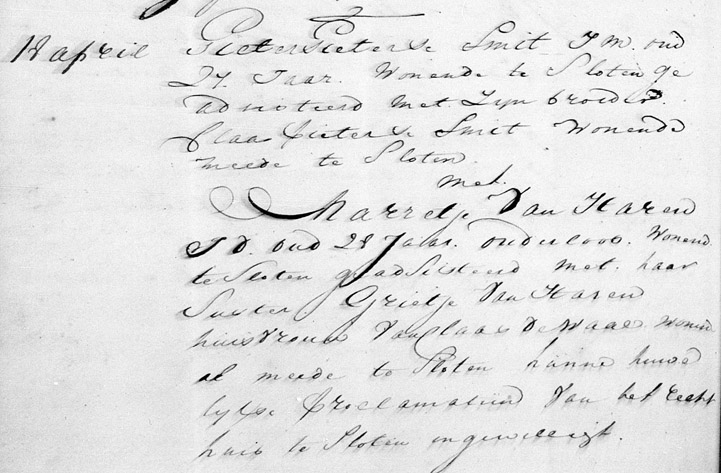 18 april Pieter Pieterse Smit J M. oud
27 Jaar. Wonende te Sloten ge
adsisteerd met Zijn broeder
Claas Pieterse Smit Wonende
meede te Sloten.
met.
Marretje Van Haren
J D. oud 28 Jaar. ouderloos. Wonend
te Sloten geadsisteerd met. haar
Suster. Grietje Van Haren
huisvrouw Van Claas De Waal. Wonend
al meede te Sloten hunne huwe
lijkse Proclamatien Van het Recht
huis te Sloten ingewilligt.